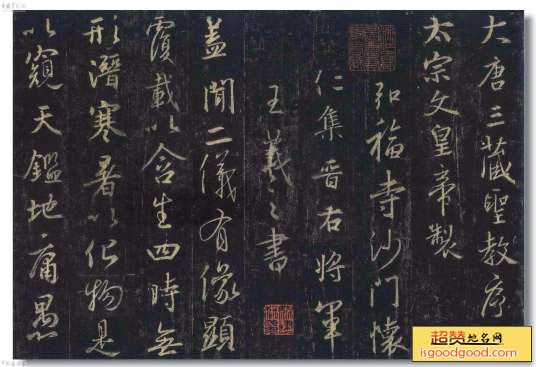 大唐三藏聖教序
太宗文皇帝製
弘福寺沙門懷
仁集晉右將軍
王羲之書
蓋聞二儀有像顯
覆載以含生四時無
形潛寒暑以化物是
以窺天鑑地庸愚
超赞地名网
isgoodgood.com